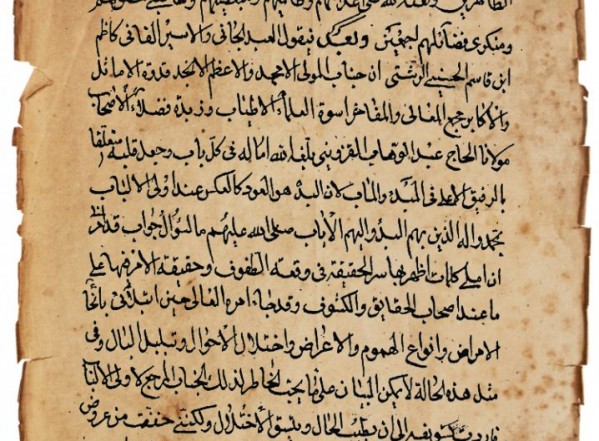 الطاهرين ولعنة الله على
ومنكري فضائلهم اجمعين وبعد فيقول العبد الجاني والاسير الفاني كاظم
ابن قاسم الحسيني الرشتي ان جناب المولى الامجد والاعظم الانجد قدوة الاماثل
والاكابر جمع المعالي والمفاخر اسوة العلماء الاطياب وزبدة فضلاء الاصحاب
مولانا الحاج عبد الوهاب القزويني بلغه الله اماله في كل باب وجعل قلبه متعلقا
بالرفيق الاعلى في المبدء والماب لان البدء هو العود كالعكس عند اولى الالباب
بمحمد واله الذين بهم البدء واليهم الاياب صلى الله عليهم ما لسؤال جواب قد امر
ان املى كلمات اظهر بها سر الحقيقة في وقعة الطفوف وحقيقة الامر فيها على
ما عند اصحاب الحقايق والكشوف وقد جاء امره العالي حين ابتلائي بانحاء
الامراض وانواع الهموم والاعراض واختلال الاحوال وتبلبل البال وفي
مثل هذه الحالة لا يمكن البيان على ما يحب الخاطر لذلك الجناب المرجع لاولى الالباب
فاردت تسويفه الى ان يطيب الحال ويلتئق الاختلال ولكنني خفت من عروض